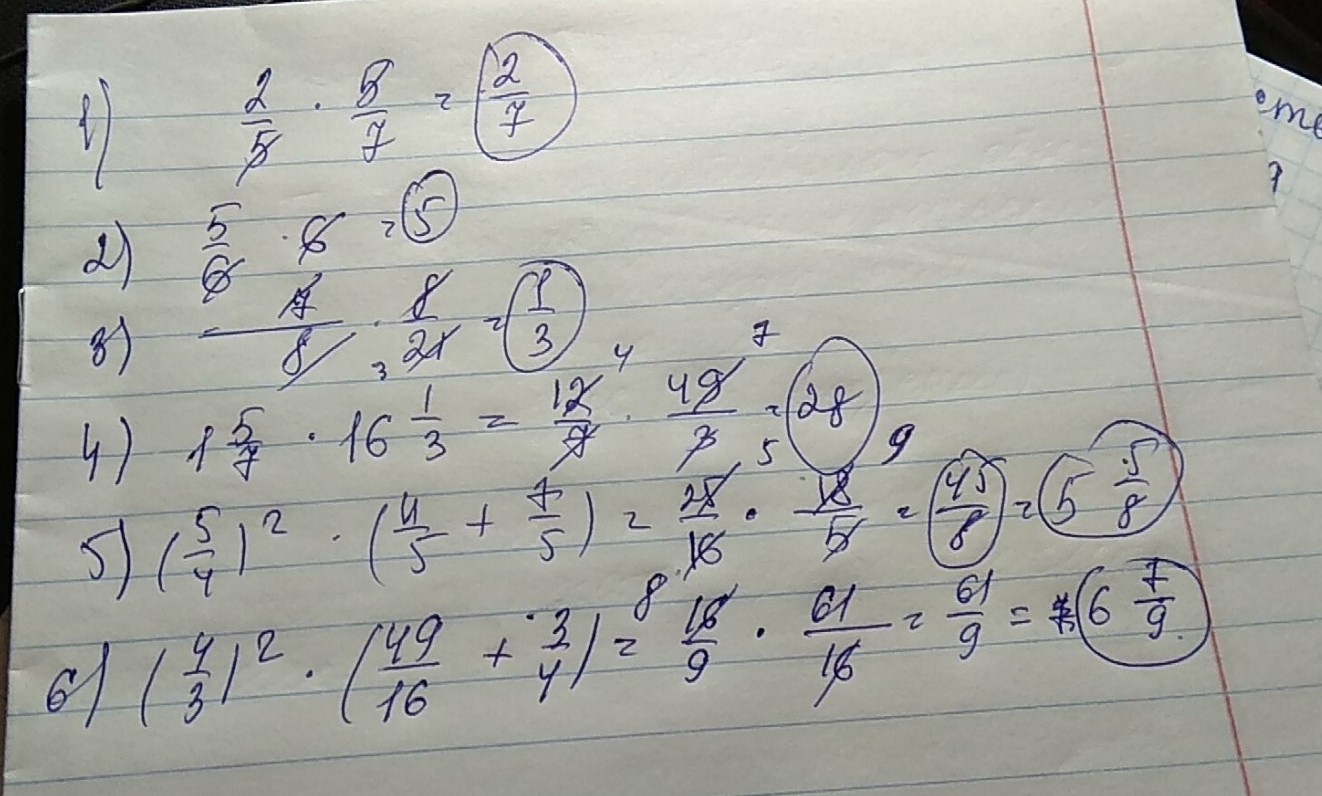 1) 2/5 · 5/7 = 2/7
2) 5/6 · 6 = 5
3) 7/8 · 8/21 3 = 1/3
4) 1 5/7 · 16 1/3 = 12/7 4 · 49/3 7 = 28
5) (5/4)² · (4/5 + 1/5) = 25/16 5 8 · 18/5 9 = 45/8 = 5 5/8
6) (4/3)² · (49/16 + 3/4) = 16/9 · 61/16 = 61/9 = 6 7/9